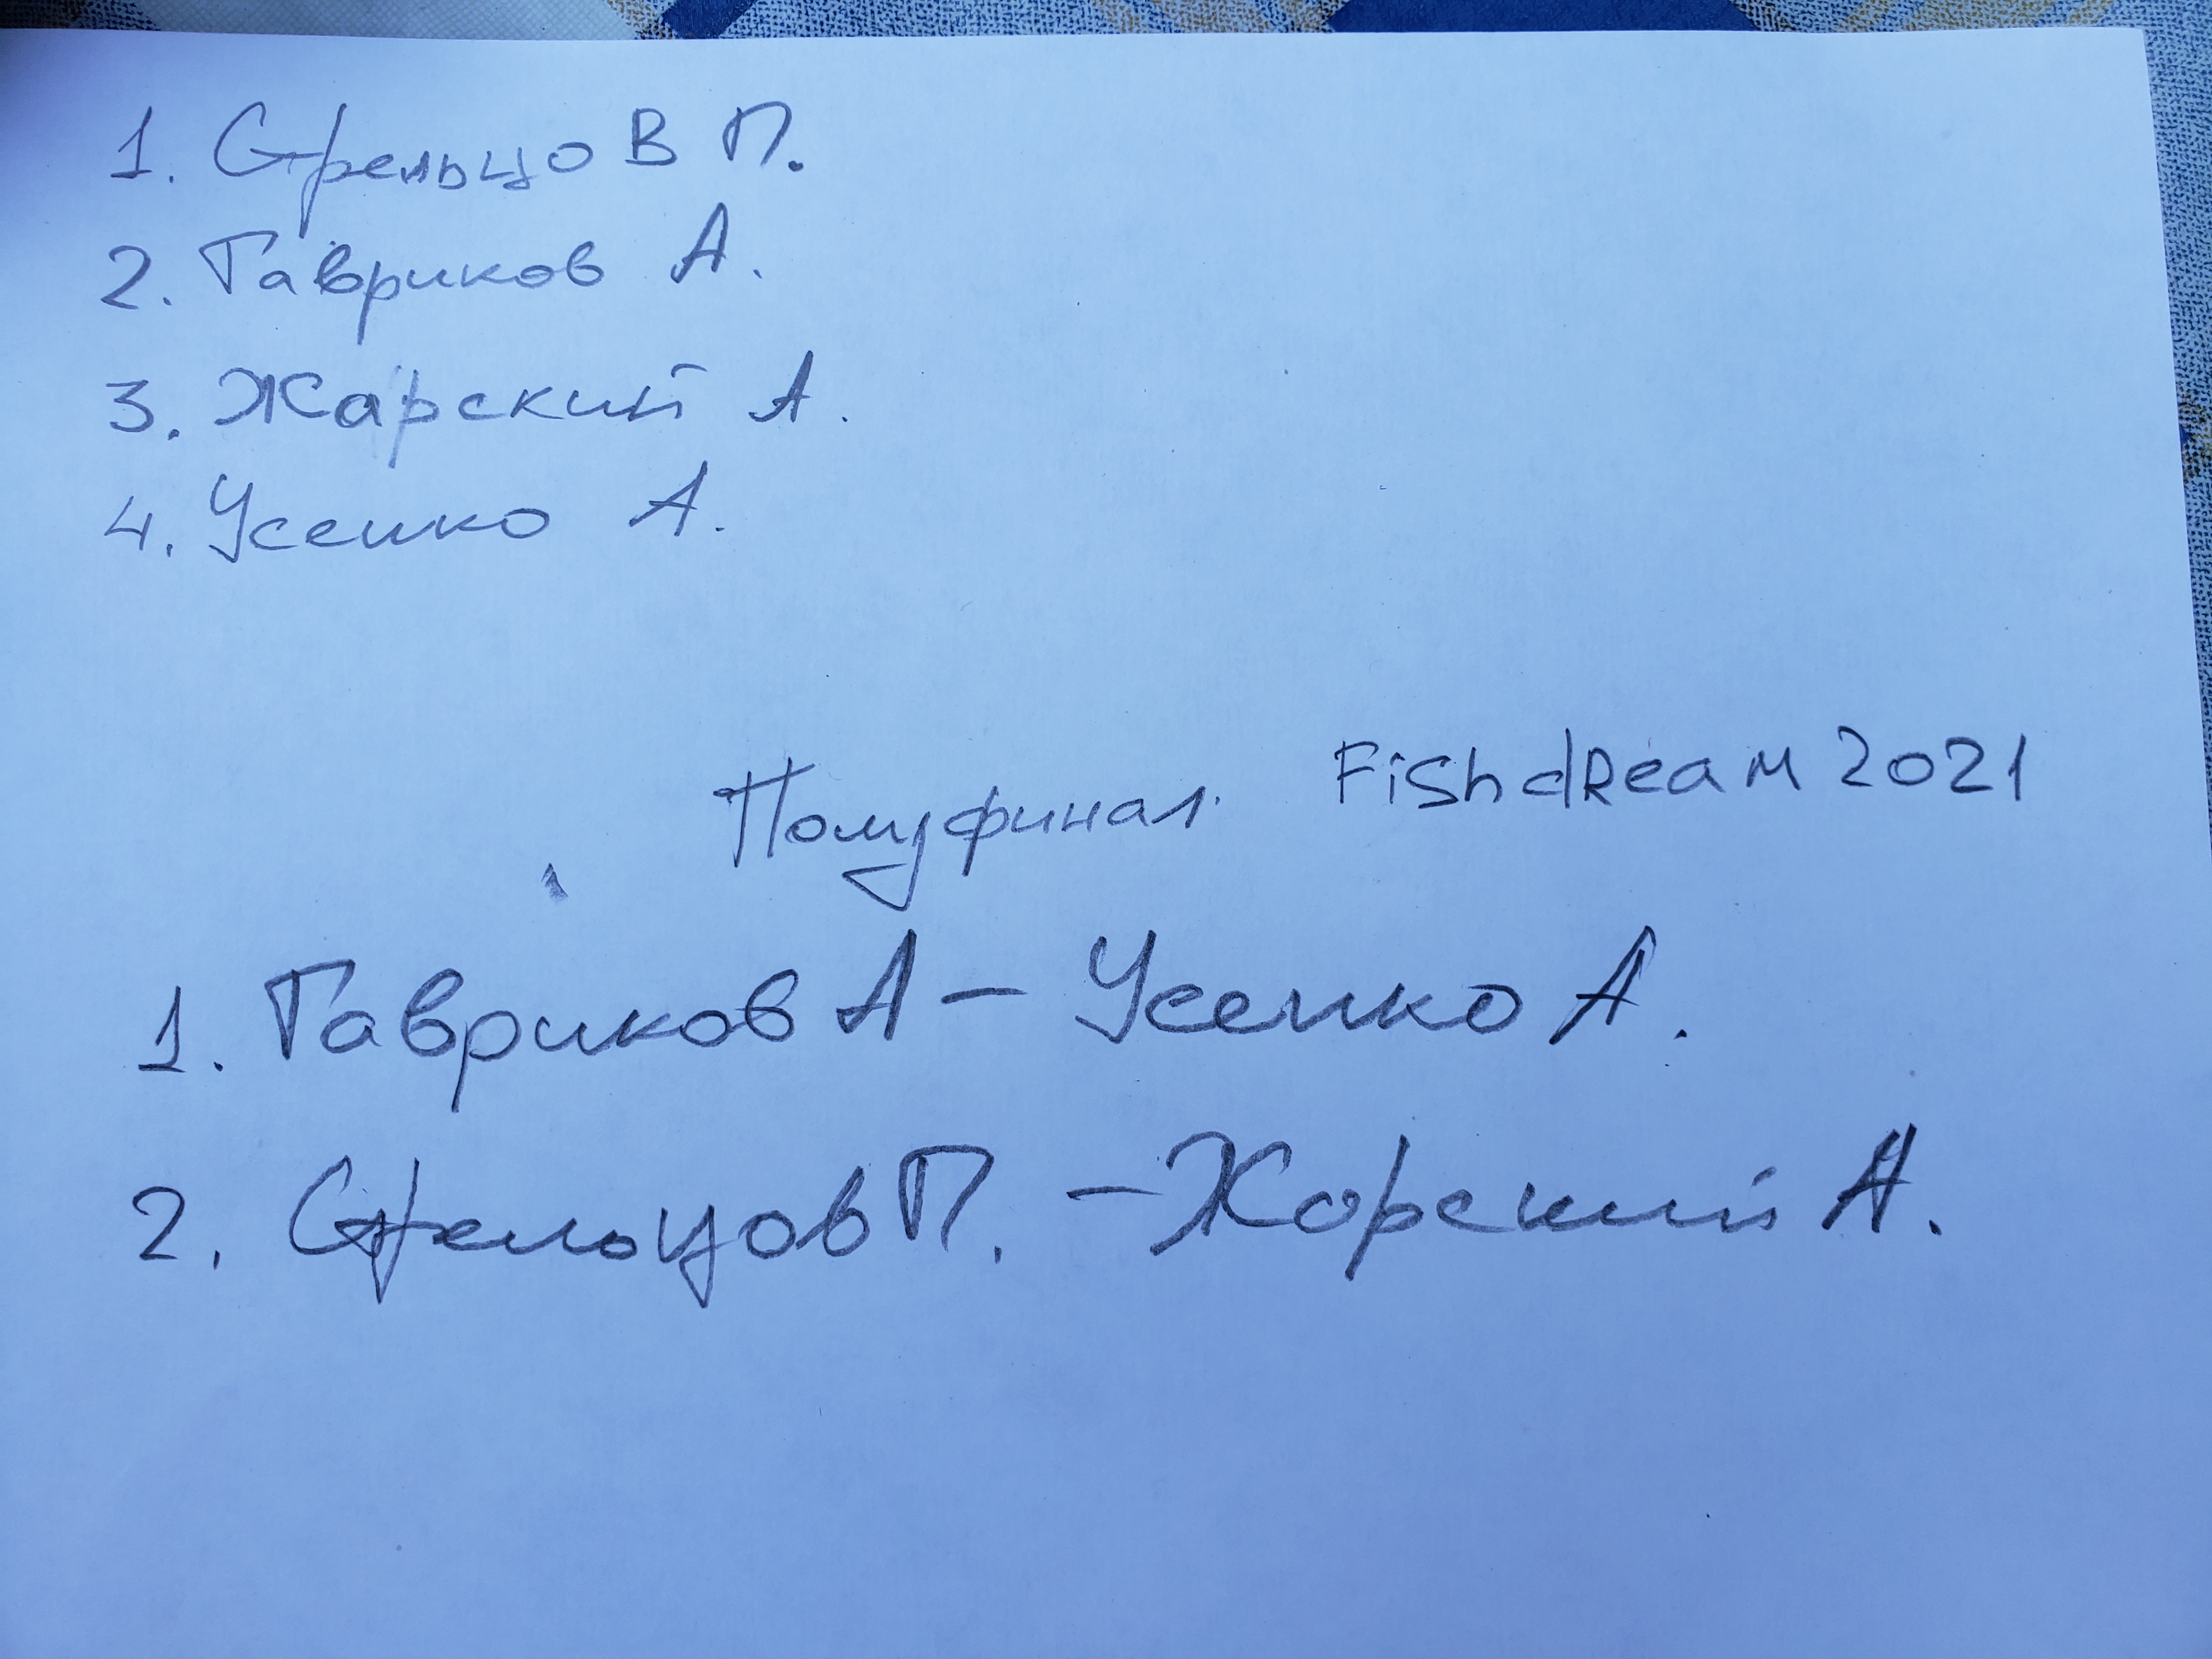 1. Стрельцов П.
2. Гавриков А.
3. Жарский А.
4. Усенко А.
Полуфинал FishdReam 2021
1. Гавриков А - Усенко А.
2. Стрельцов П. - Жарский А.